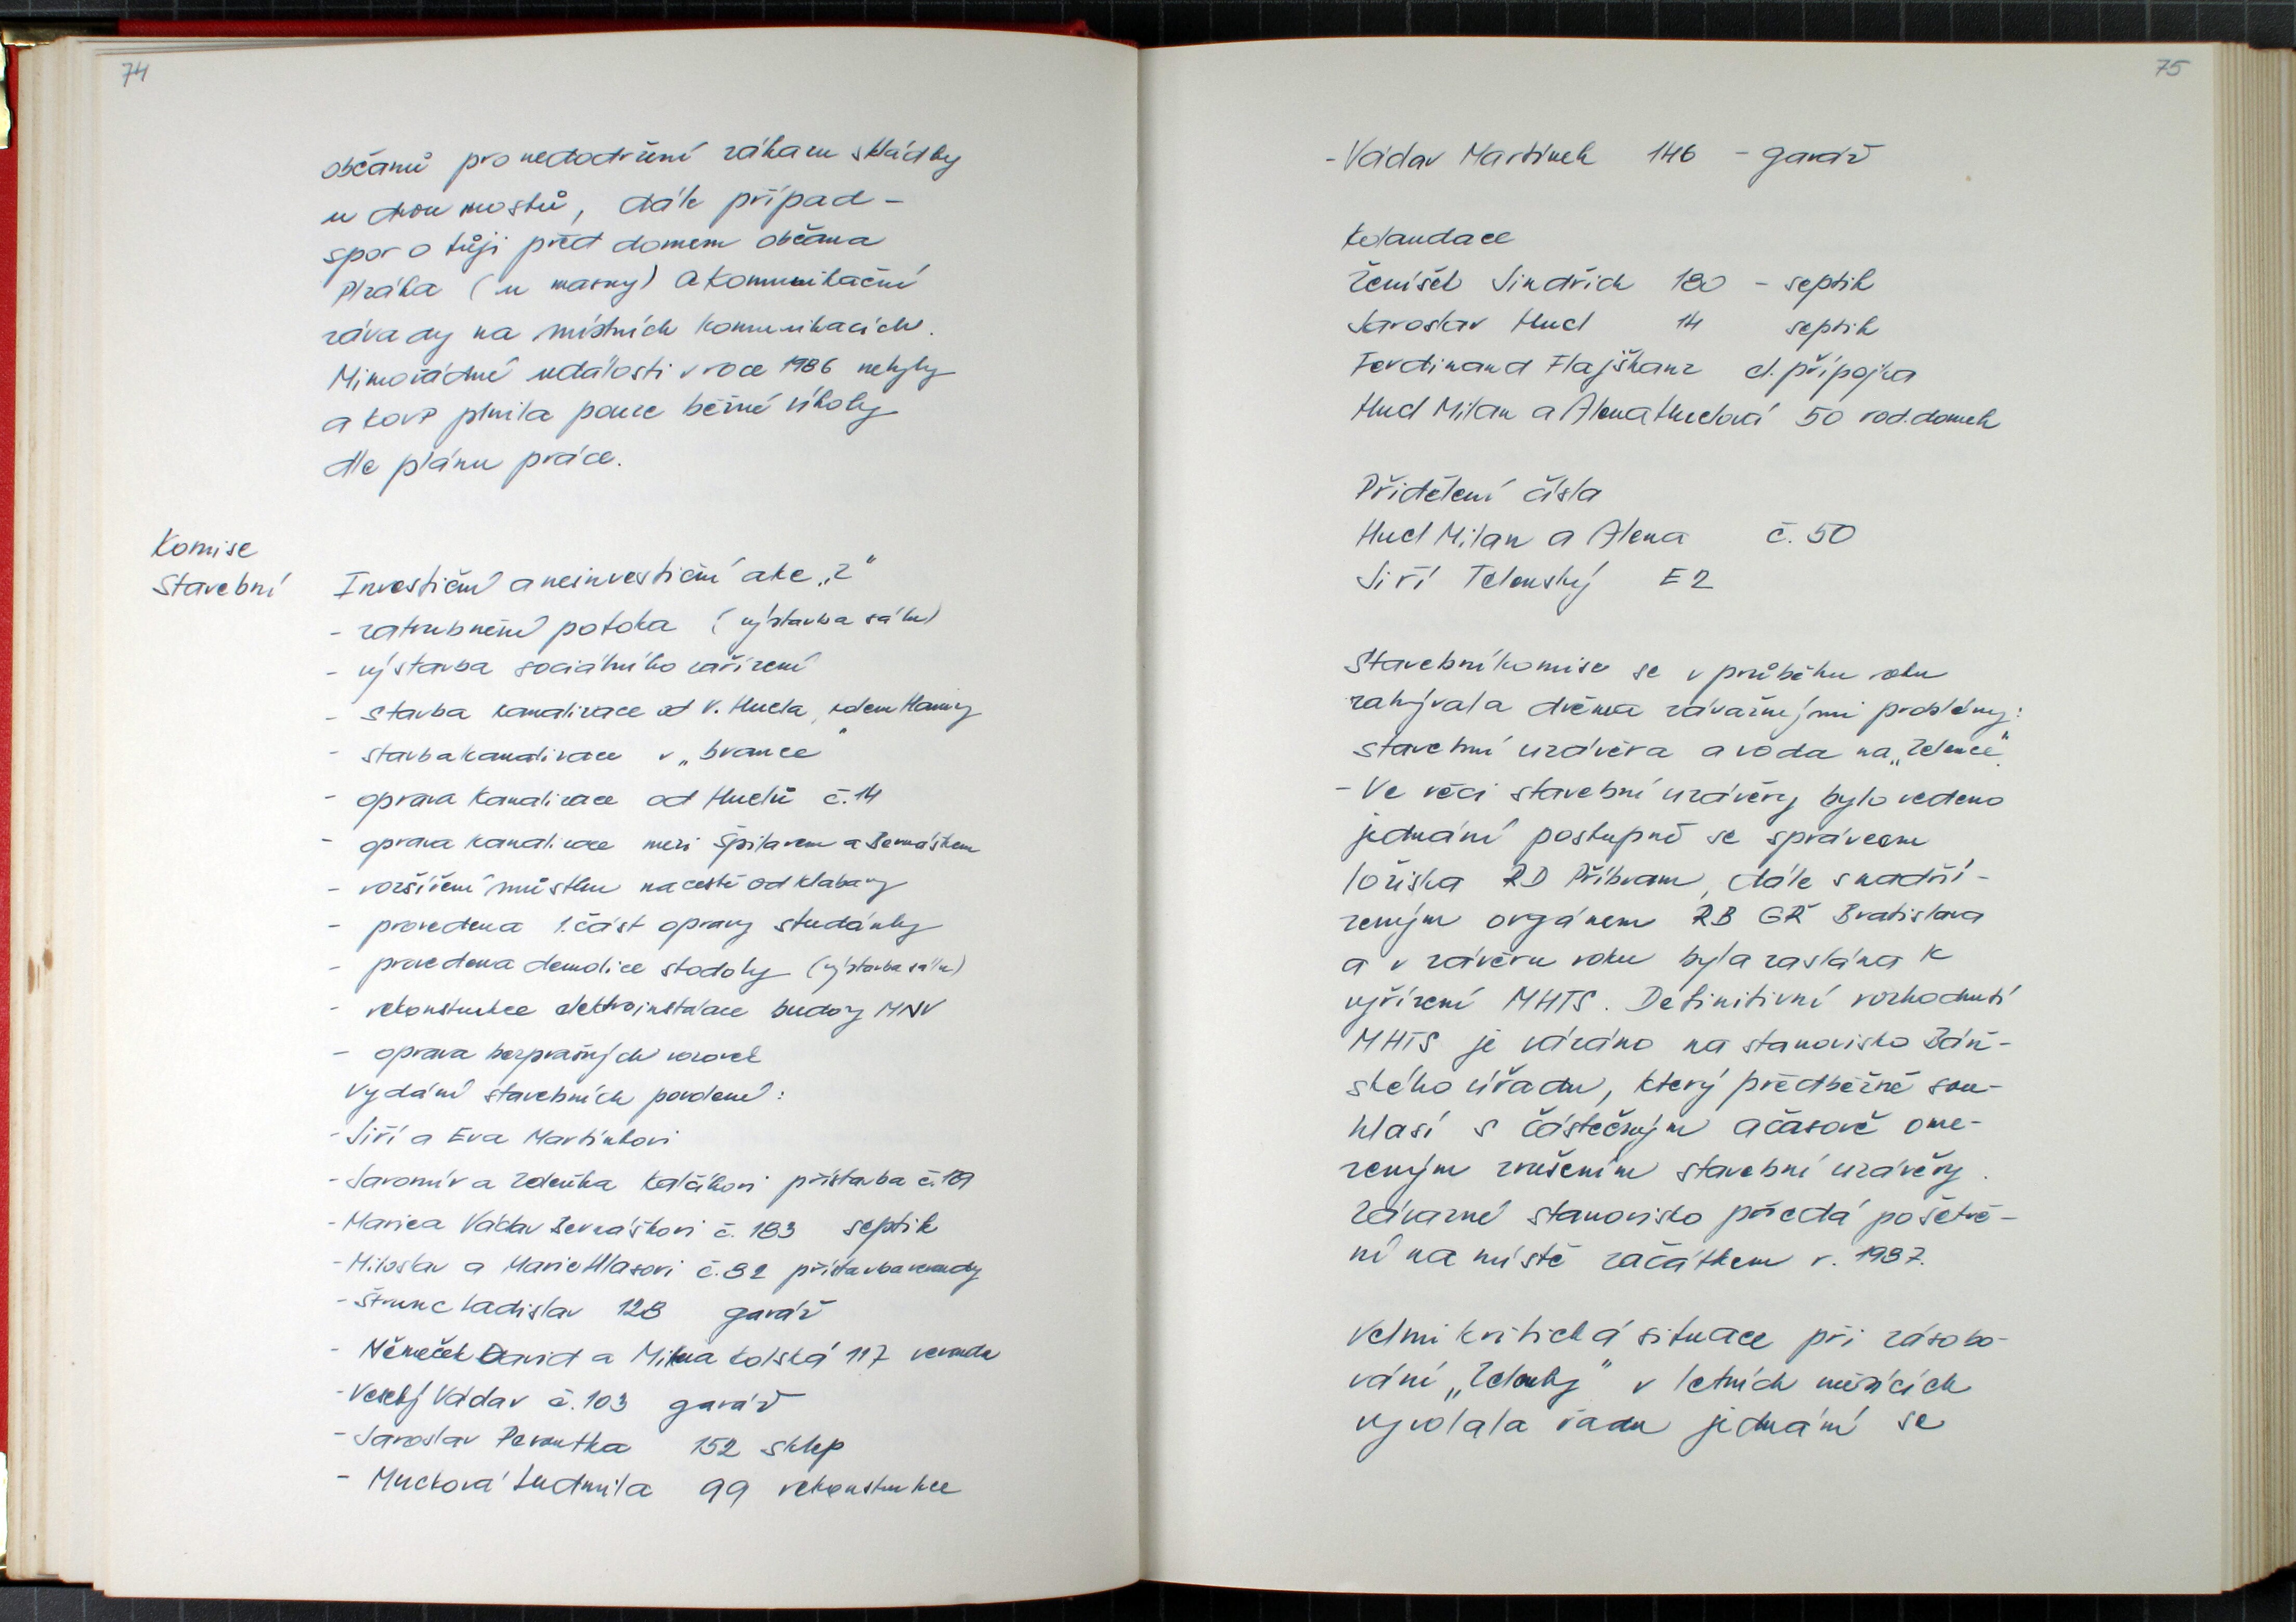 74
občanů pro nedodržení zákazu skládky
u dvou mostů, dále případ -
spor o tůji před domem občana
Ptáka (u masny) a komunikační
závady na místních komunikacích.
Mimořádné události v roce 1986 nebyly
a KOVP plnila pouze běžné úkoly
dle plánu práce.
Komise
Stavební
Investiční a neinvestiční akce „Z“
- zatrubnění potoka (výstavba sálu)
- výstavba sociálního zařízení
- stavba kanalizace od V. Hucla, kolem Hamry
- stavba kanalizace v „brance“
- oprava kanalizace od Huclů č. 14
- oprava kanalizace mezi Špilarem a Bernáškem
- rozšíření můstku na cestě od Klabavy
- provedena 1. část opravy studánky
- provedena demolice stodoly (výstavba sálu)
- rekonstrukce elektroinstalace budovy MNV
- oprava bezprašných vozovek
Vydání stavebních povolení:
- Jiří a Eva Martínkovi
- Jaromír a Zdeňka Kalčíkovi přístavba č. 189
- Marie a Václav Bernáškovi č. 183 septik
- Miloslav a Marie Hlasovi č. 82 přístavba verandy
- Štrunc Ladislav 128 garáž
- Němeček David a Milena Kolská 117 veranda
- Veselý Václav č. 103 garáž
- Jaroslav Pavoutka 152 sklep
- Mucková Ludmila 99 rekonstrukce
75
- Václav Martínek 146 - garáž
Kolaudace
Ženíšek Jindřich 180 - septik
Jaroslav Hucl 14 septik
Ferdinand Flajšhanz el. přípojka
Hucl Milan a Alena Huclová 50 rod. domek
Přidělení čísla
Hucl Milan a Alena č. 50
Jiří Telenský E 2
Stavební komise se v průběhu roku
zabývala dvěma závažnými problémy:
stavební uzávěra a voda na „Zelence“.
- Ve věci stavební uzávěry bylo vedeno
jednání postupně se správcem
ložiska RD Příbram, dále s nadří-
zeným orgánem RB GŘ Bratislava
a v závěru roku byla zaslána k
vyřízení MHTS. Definitivní rozhodnutí
MHTS je vázáno na stanovisko Báň-
ského úřadu, který předběžně sou-
hlasí s částečným a časově ome-
zeným zrušením stavební uzávěry.
Závazné stanovisko předá po šetře-
ní na místě začátkem r. 1987.
Velmi kritická situace při zásobo-
vání „Zelenky“ v letních měsících
vyvolala řadu jednání se